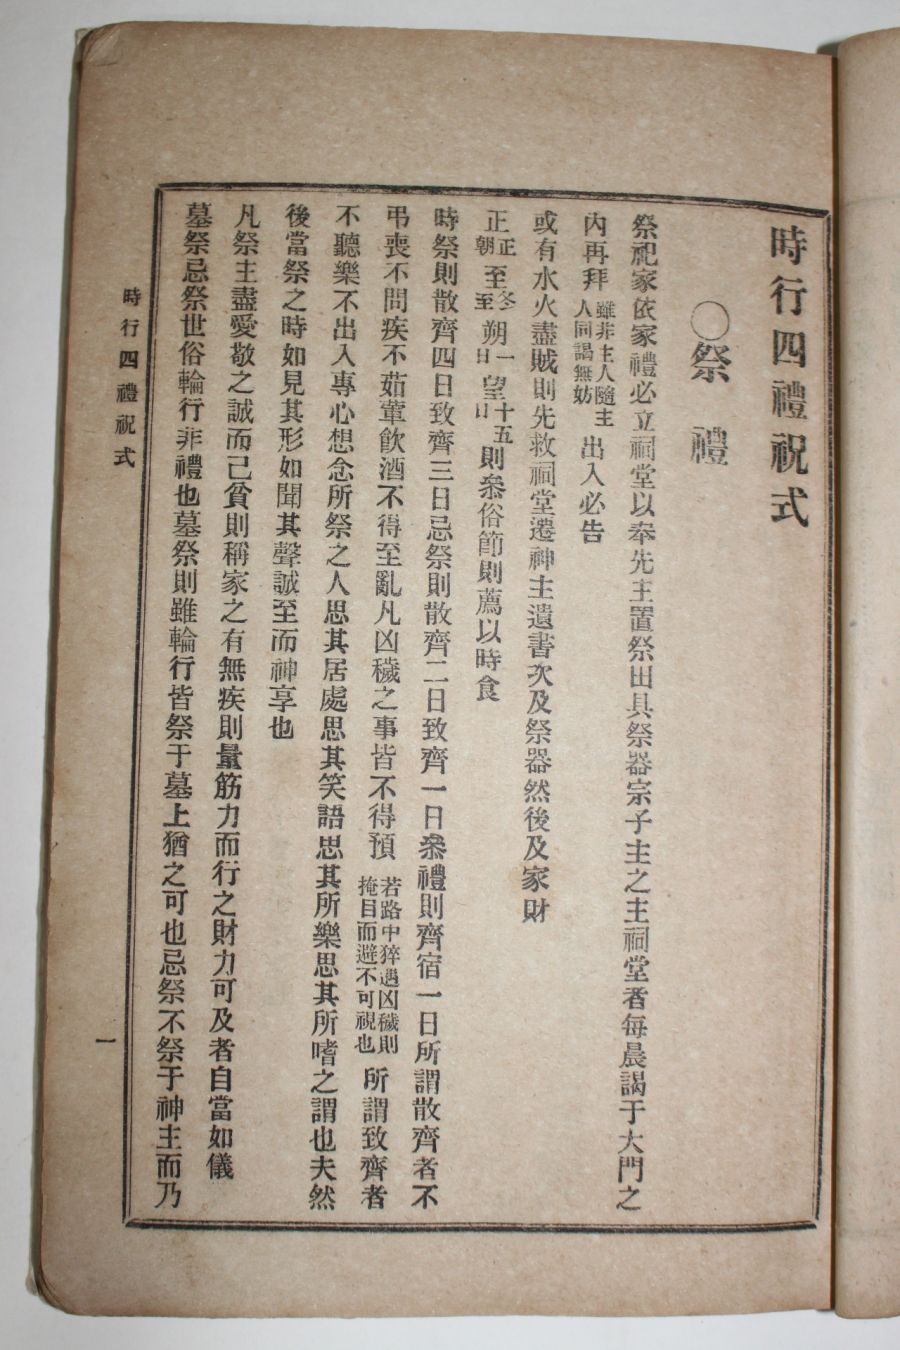 時行四禮祝式
〇祭禮
祭祀家依家禮必立祠堂以奉先主置祭田具祭器宗子主之主祠堂者每晨謁于大門之
內再拜雖非主人隨主人同謁無妨出入必告
或有水火盡賊則先救祠堂遷神主遺書次及祭器然後及家財
正正朝至冬至朔一日望十五日則叅俗節則薦以時食
時祭則散齊四日致齊三日忌祭則散齊二日致齊一日叅禮則齊宿一日所謂散齊者不
弔喪不問疾不茹葷飮酒不得至亂凡凶穢之事皆不得預若路中猝遇凶穢則掩目而避不可視也所謂致齊者
不聽樂不出入專心想念所祭之人思其居處思其笑語思其所樂思其所嗜之謂也夫然
後當祭之時如見其形如聞其聲誠至而神享也
凡祭主盡愛敬之誠而已貧則稱家之有無疾則量筋力而行之財力可及者自當如儀
墓祭忌祭世俗輪行非禮也墓祭則雖輪行皆祭于墓上猶之可也忌祭不祭于神主而乃
時行四禮祝式
一